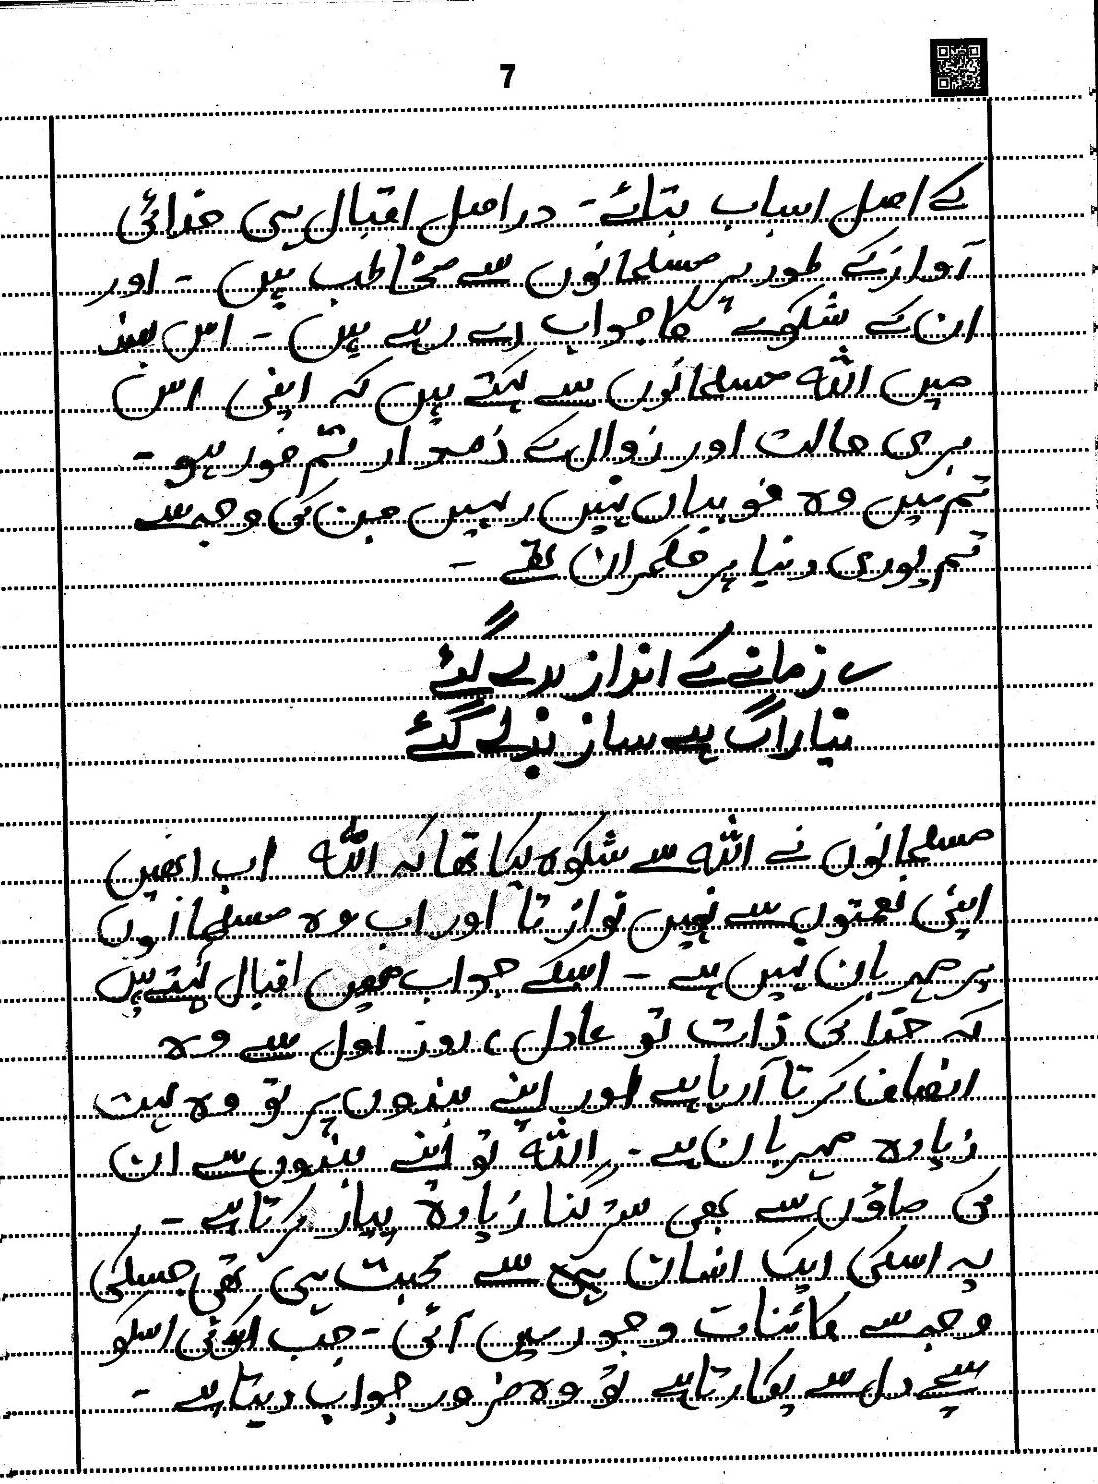 7
کے اصل اسباب بتائے۔ دراصل اقبال ہی خدائی
آواز کے طور پر مسلمانوں سے مخاطب ہیں ۔ اور
ان کے شکوے کا جواب دے رہے ہیں ۔ اس بند
میں اللہ مسلمانوں سے کہتے ہیں کہ اپنی اس
بری حالت اور زوال کے ذمہ دار تم خود ہو ۔
تم میں وہ خوبیاں نہیں رہیں جن کی وجہ سے
تم پوری دنیا پر حکمران تھے ۔
؎ زمانے کے انداز بدلے گئے
نیا راگ ہے ساز بدلے گئے
مسلمانوں نے اللہ سے شکوہ کیا تھا کہ اللہ اب انھیں
اپنی نعمتوں سے نہیں نوازتا اور اب وہ مسلمانوں
پر مہربان نہیں ہے ۔ اسکے جواب میں اقبال کہتے ہیں
کہ خدا کی ذات تو عادل، روز اول سے وہ
انصاف کرتا آ رہا ہے اور اپنے بندوں پر تو وہ بہت
زیادہ مہربان ہے۔ اللہ تو اپنے بندوں سے ان
کی ماؤں سے بھی ستر گنا زیادہ پیار کرتا ہے ۔
یہ اسکی ایک انسان ہی سے محبت ہی تھی جسکی
وجہ سے کائنات وجود میں آئی ۔ جب کوئی اسکو
سچے دل سے پکارتا ہے تو وہ ضرور جواب دیتا ہے ۔